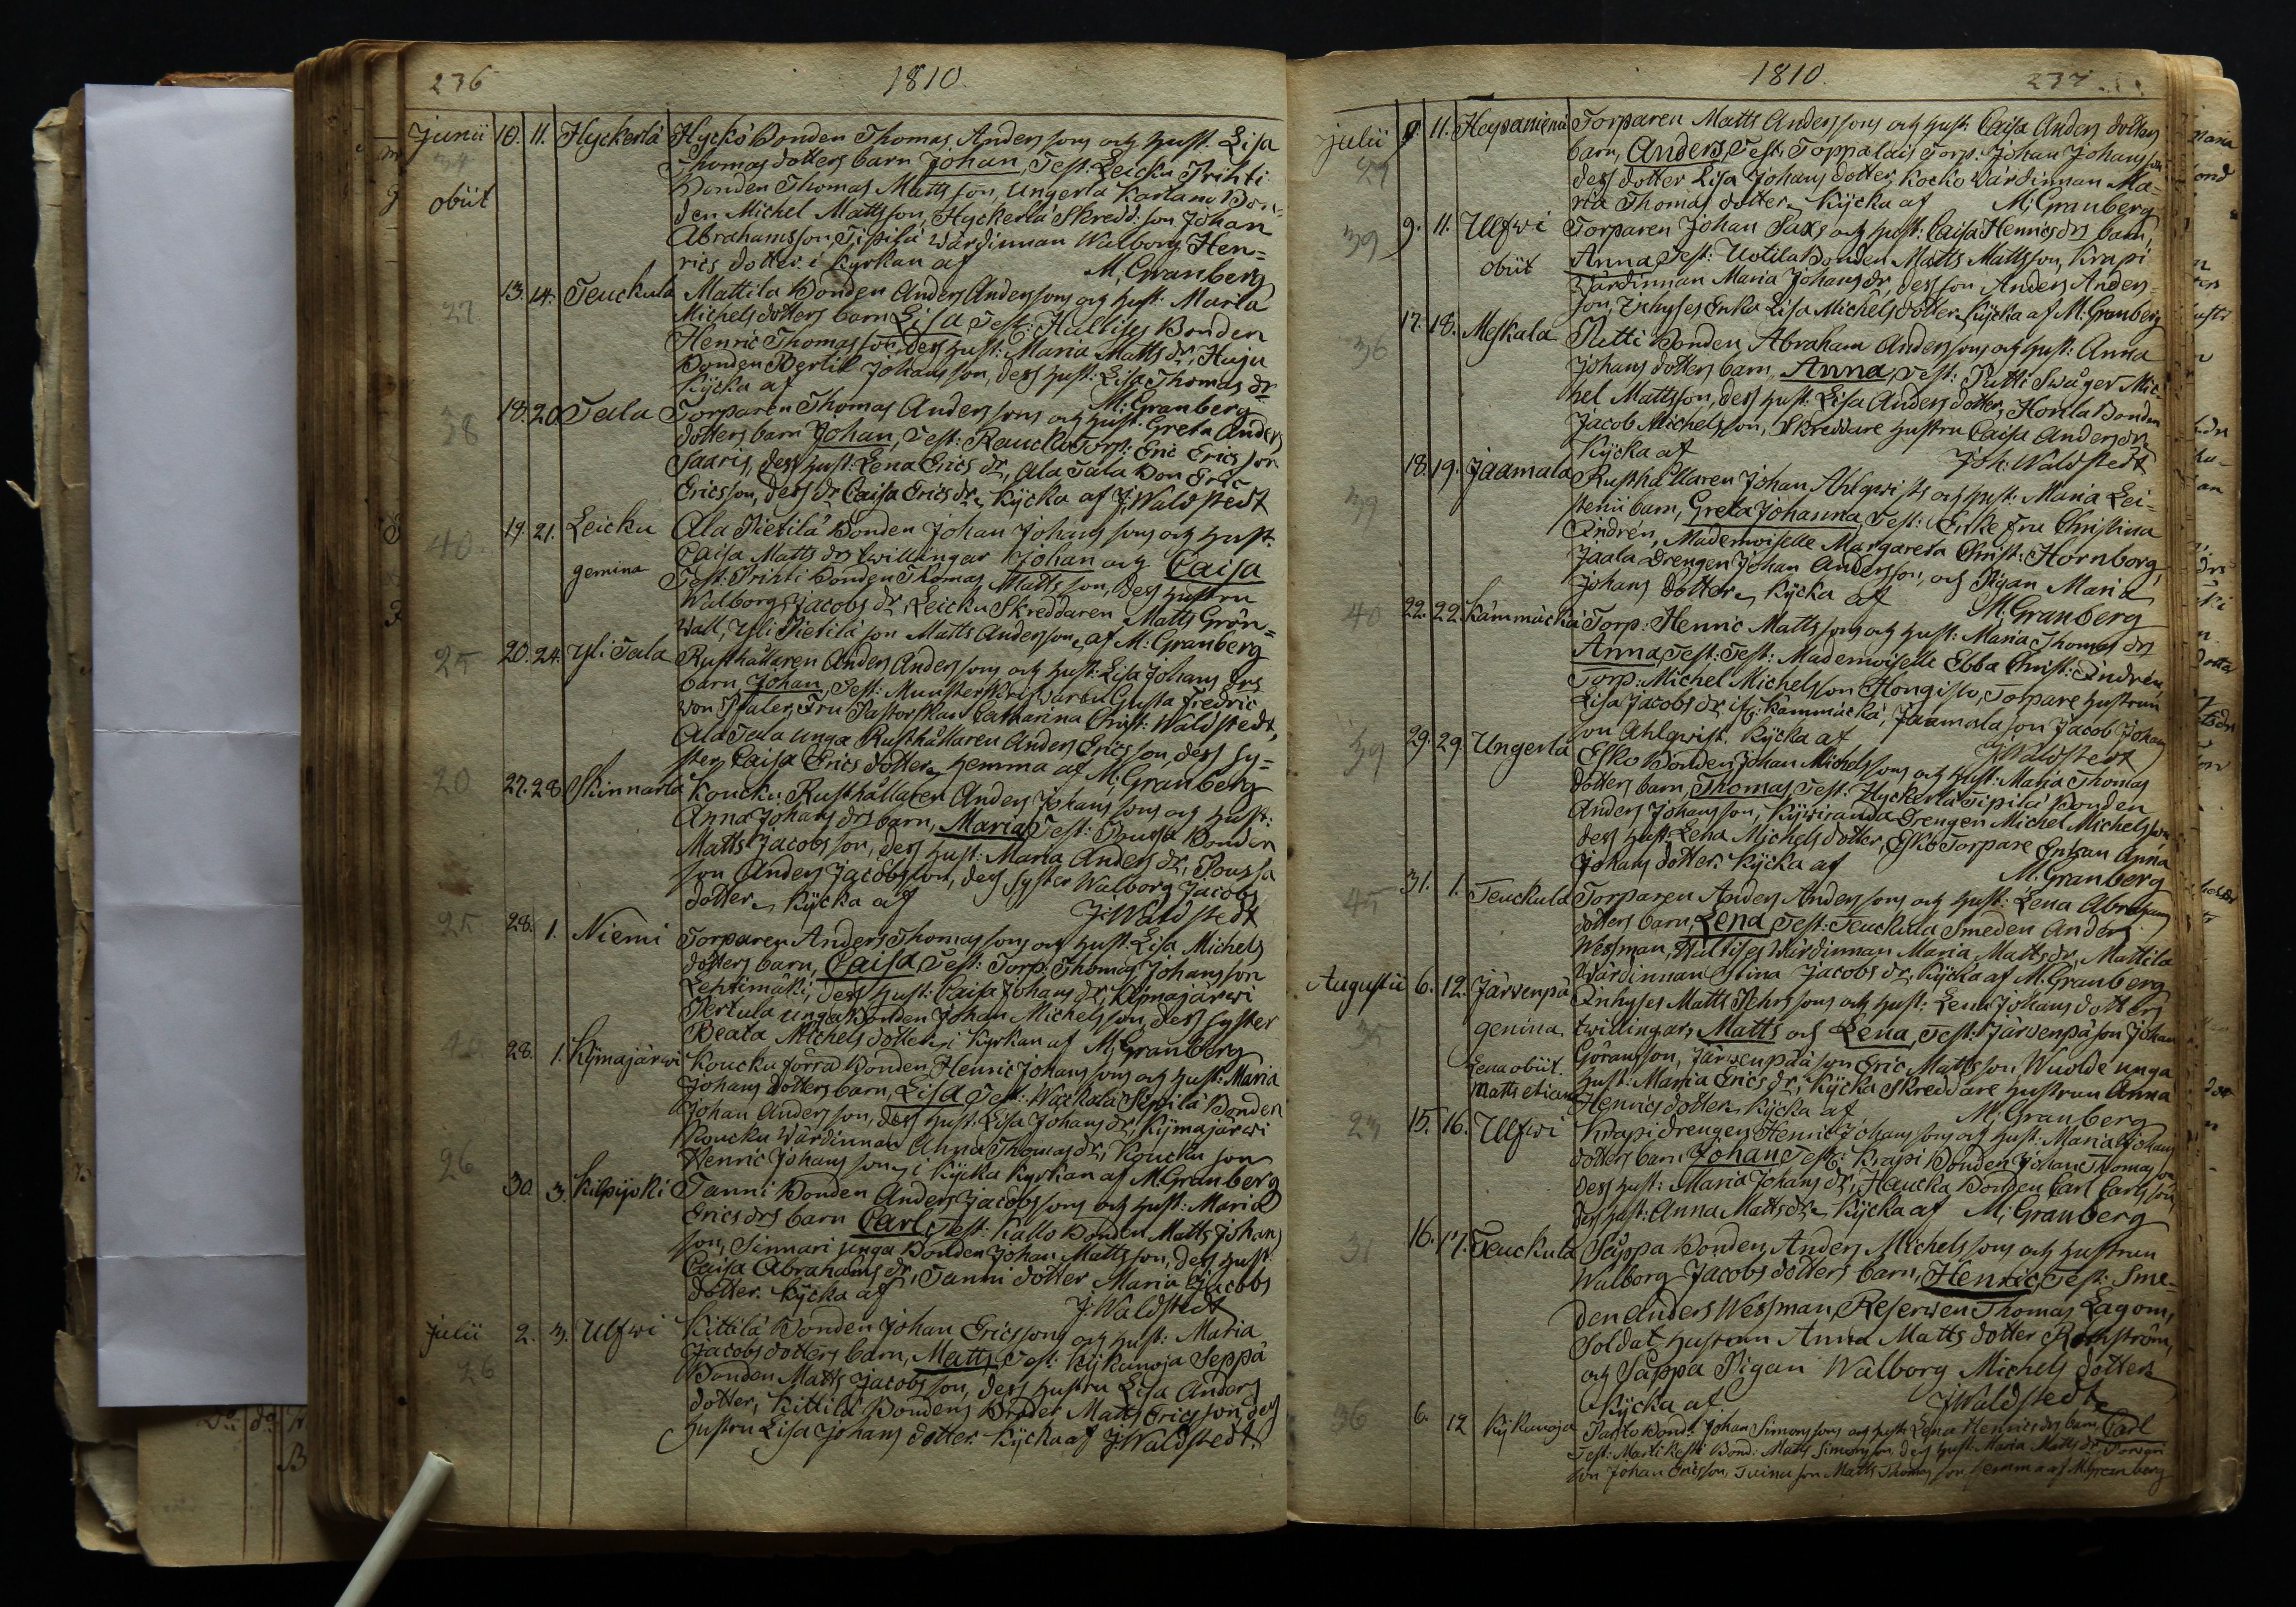 236
1810.
Junii 10. 11. Hyckerlä Hyckö Bonden Thomas Anderssons och Hust. Lisa
Thomas dotters barn Johan, Test: Leicku Prihti
obiit Bonden Thomas Mattsson, Ungerla Kartano Bon-
den Michel Mattsson, Hyckerlä Skredd: son Johan
Abrahamsson, Tipilä Wärdinnan Walborg Hen-
rics dotter i Kyrkan af M. Granberg
27 13. 14. Teuckula Mattila Bonden Anders Anderssons och Hust: Maria
Michels dotters barn Lisa Test: Hallises Bonden
Henric Thomasson, dess Hust: Maria Matts dr, Huju
Bonden Bertil Johansson, dess Hust: Lisa Thomas dr
Kÿcka af M: Granberg
38 18. 20. Tala Torparen Thomas Anderssons och Hust. Greta Anders
dotters barn Johan, Test: Raucka Torp: Eric Ericsson
Saaris, dess Hust: Lena Erics dr, Ala Tala Bon Eric
Ericsson, dess dr Caisa Erics dr, Kÿcka af J. Waldstedt
40 19. 21. Leicku Ala Pietilä Bonden Johan Johanssons och Hust.
Caisa Matts drs twillingar Johan och Caisa
gemina Test: Prihti Bonden Thomas Mattsson, dess Hustru
Walborg Jacobs dr, Leicku Skreddaren Matts Grön-
wall, Yli Pietilä son Matts Andersson, af M: Granberg
25 20. 24. Yli Tala Rusthållaren Anders Anderssons och Hust: Lisa Johans drs
barn Johan, Test: Munsterskrifwaren Gusta Fredric
von Thaler, Fru Pastorskan Catharina Christ: Waldstedt,
Ala Tala unga Rusthållaren Anders Ericsson, dess Sy-
ster Caisa Erics dotter, hemma af M: Granberg
20 27. 28. Skinnarla Koucku Rusthållaren Anders Johanssons och Hust:
Anna Johans drs barn, Maria Test: Prussa Bonden
Matts Jacobsson, dess Hust: Maria Anders dr, Poussa
son Anders Jacobsson, dess Syster Walborg Jacobs
dotter, Kÿcka af J. Waldstedt
25 28. 1. Niemi Torparen Anders Thomassons och Hust: Lisa Michels
dotters barn, Caisa, Test: Torp: Thomas Johansson
Lehtimäki, dess Hust: Caisa Johans dr, Kÿmajärwi
Pertula unga Bonden Johan Michelsson, dess Syster
Beata Michels dotter, i Kyrkan af M: Granberg
28. 1. Kÿmajärwi Koucku förra Bonden Henric Johanssons och Hust: Maria
Johans dotters barn, Lisa Test: Wackala Seppilä Bonden
Johan Andersson, dess Hust: Lisa Johans dr, Kÿmajärwi
Koucku Wärdinnan Anna Thomas dr, Koucku son
26 Henric Johansson, i Kÿcka Kyrkan af M: Granberg
30. 3. Kilpijoki Tanni Bonden Anders Jacobssons och Hust: Maria
Erics drs barn Carl, Test: Kallo Bonden Matts Johans
son, Sinnari unga Bonden Johan Mattsson, dess Hust
Caisa Abrahams dr, Tanni dotter Maria Jacobs
dotter. Kÿcka af J. Waldstedt
Julii 2. 3. Ulfwi Kittilä Bonden Johan Ericssons och Hust: Maria
26 Jacobs dotters barn, Matts, Test: Kÿkänoja Seppä
Bonden Matts Jacobsson, dess Hustru Lisa Anders
dotter, Kittilä Bondens Broder Matts Ericsson, dess
Hustru Lisa Johans dotter. Kÿcka af J. Waldstedt.
1810.
237
Julii 9. 11. Hapaniemi Torparen Matts Anderssons och Hust: Caisa Anders dotters
29 barn, Anders, Test: Toppalais Torp. Johan Johansson
dess dotter Lisa Johans dotter, Kocko Wärdinnan Ma-
ria Thomas dotter, Kÿcka af M: Granberg
39 9. 11. Ulfwi Torparen Johan Saxs och Hust: Caisa Henrics drs barn,
obiit Anna, Test: Uotila Bonden Matts Mattsson, Krapi
Wärdinnan Maria Johans dr, dess son Anders Anders-
son, Inhyses Enka Lisa Michels dotter, Kÿcka af M: Granberg
36 17. 18. Meskala Putti Bonden Abraham Anderssons och Hust: Anna
Johans dotters barn, Anna, Test: Putti Swåger Mic-
hel Mattsson, dess Hust: Lisa Anders dotter, Honla Bonden
Jacob Michelsson, Skreddare Hustru Caisa Anders dr,
Kÿcka af Joh: Waldstedt
39 18. 19. Jaamala Rusthållaren Johan Ahlqwists och Hust: Maria Lei-
stenii barn, Greta Johanna, Test: Enke Fru Christina
Andrén, Mademoiselle Margareta Christ: Hornborg,
Jaala Drengen Johan Andersson, och Pigan Maria
Johans dotter, Kÿcka af M: Granberg
40 22. 22. Kämmäckä Torp: Henric Mattssons och Hust: Maria Thomas drs
Anna, Test: Test: Mademoiselle Ebba Christ: Andrén,
Torp: Michel Michelsson Hongisto, Torpare Hustrun
Lisa Jacobs dr ifr: Kämmäckä, Jaamala son Jacob Johans
son Ahlqwist. Kÿcka af J. Waldstedt
39 29. 29. Ungerla Esko Bonden Johan Michelssons och Hust: Maria Thomas
dotters barn, Thomas, Test: Hyckerlä Tipilä Bonden
Anders Johansson, Kÿwiranda Drengen Michel Michelsson
dess Hust: Lena Michels dotter, Esko Torpare Enkan Anna
Johans dotter. Kÿcka af M. Granberg
45 31. 1. Teuckula Torparen Anders Anderssons och Hust: Lena Abrahams
dotters barn, Lena, Test: Teuckula Smeden Anders
Wessman, Hallises Wärdinnan Maria Matts dr, Mattila
Wärdinnan Stina Jacobs dr, Kÿcka af M: Granberg
Augustii 6. 12. Järvenpä Inhyses Matts Pehrssons och Hust: Lena Johans dotters
35 gemina. twillingar, Matts och Lena, Test: Järvenpä son Johan
Göransson, Järwenpää son Eric Mattsson, Wuolde unga
Lena obiit. Hust: Maria Erics dr, Kÿcka Skreddare Hustrun Anna
Matts etiam Henrics dotter, Kÿcka af M: Granberg
23 15. 16. Ulfwi Krapi drengen Henric Johanssons och Hust: Maria Johans
dotters barn Johan, Test: Krapi Bonden Johan Thomasson
dess Hust: Maria Johans dr, Haucka Bonden Carl Carlsson,
dess Hust: Anna Matts dr. Kÿcka af M: Granberg
31 16. 17. Teuckula Säppä Bonden Anders Michelssons och Hustrun
Walborg Jacobs dotters barn, Henric, Test: Sme-
den Anders Wessman, Reserven Thomas Lagom,
Soldat Hustrun Anna Matts dotter
och Säppä Pigan Walborg Michels dotter
Kÿcka af J. Waldstedt
36 6. 12 Kÿkänoja Bond: Johan Simonssons och Hust: Lena Henrics drs barn, Carl
Test: Bond: Matts Simonsson, dess Hust: Maria Matts dr,
son Johan Ericsson, son Matts Thomasson hemma af M: Granberg